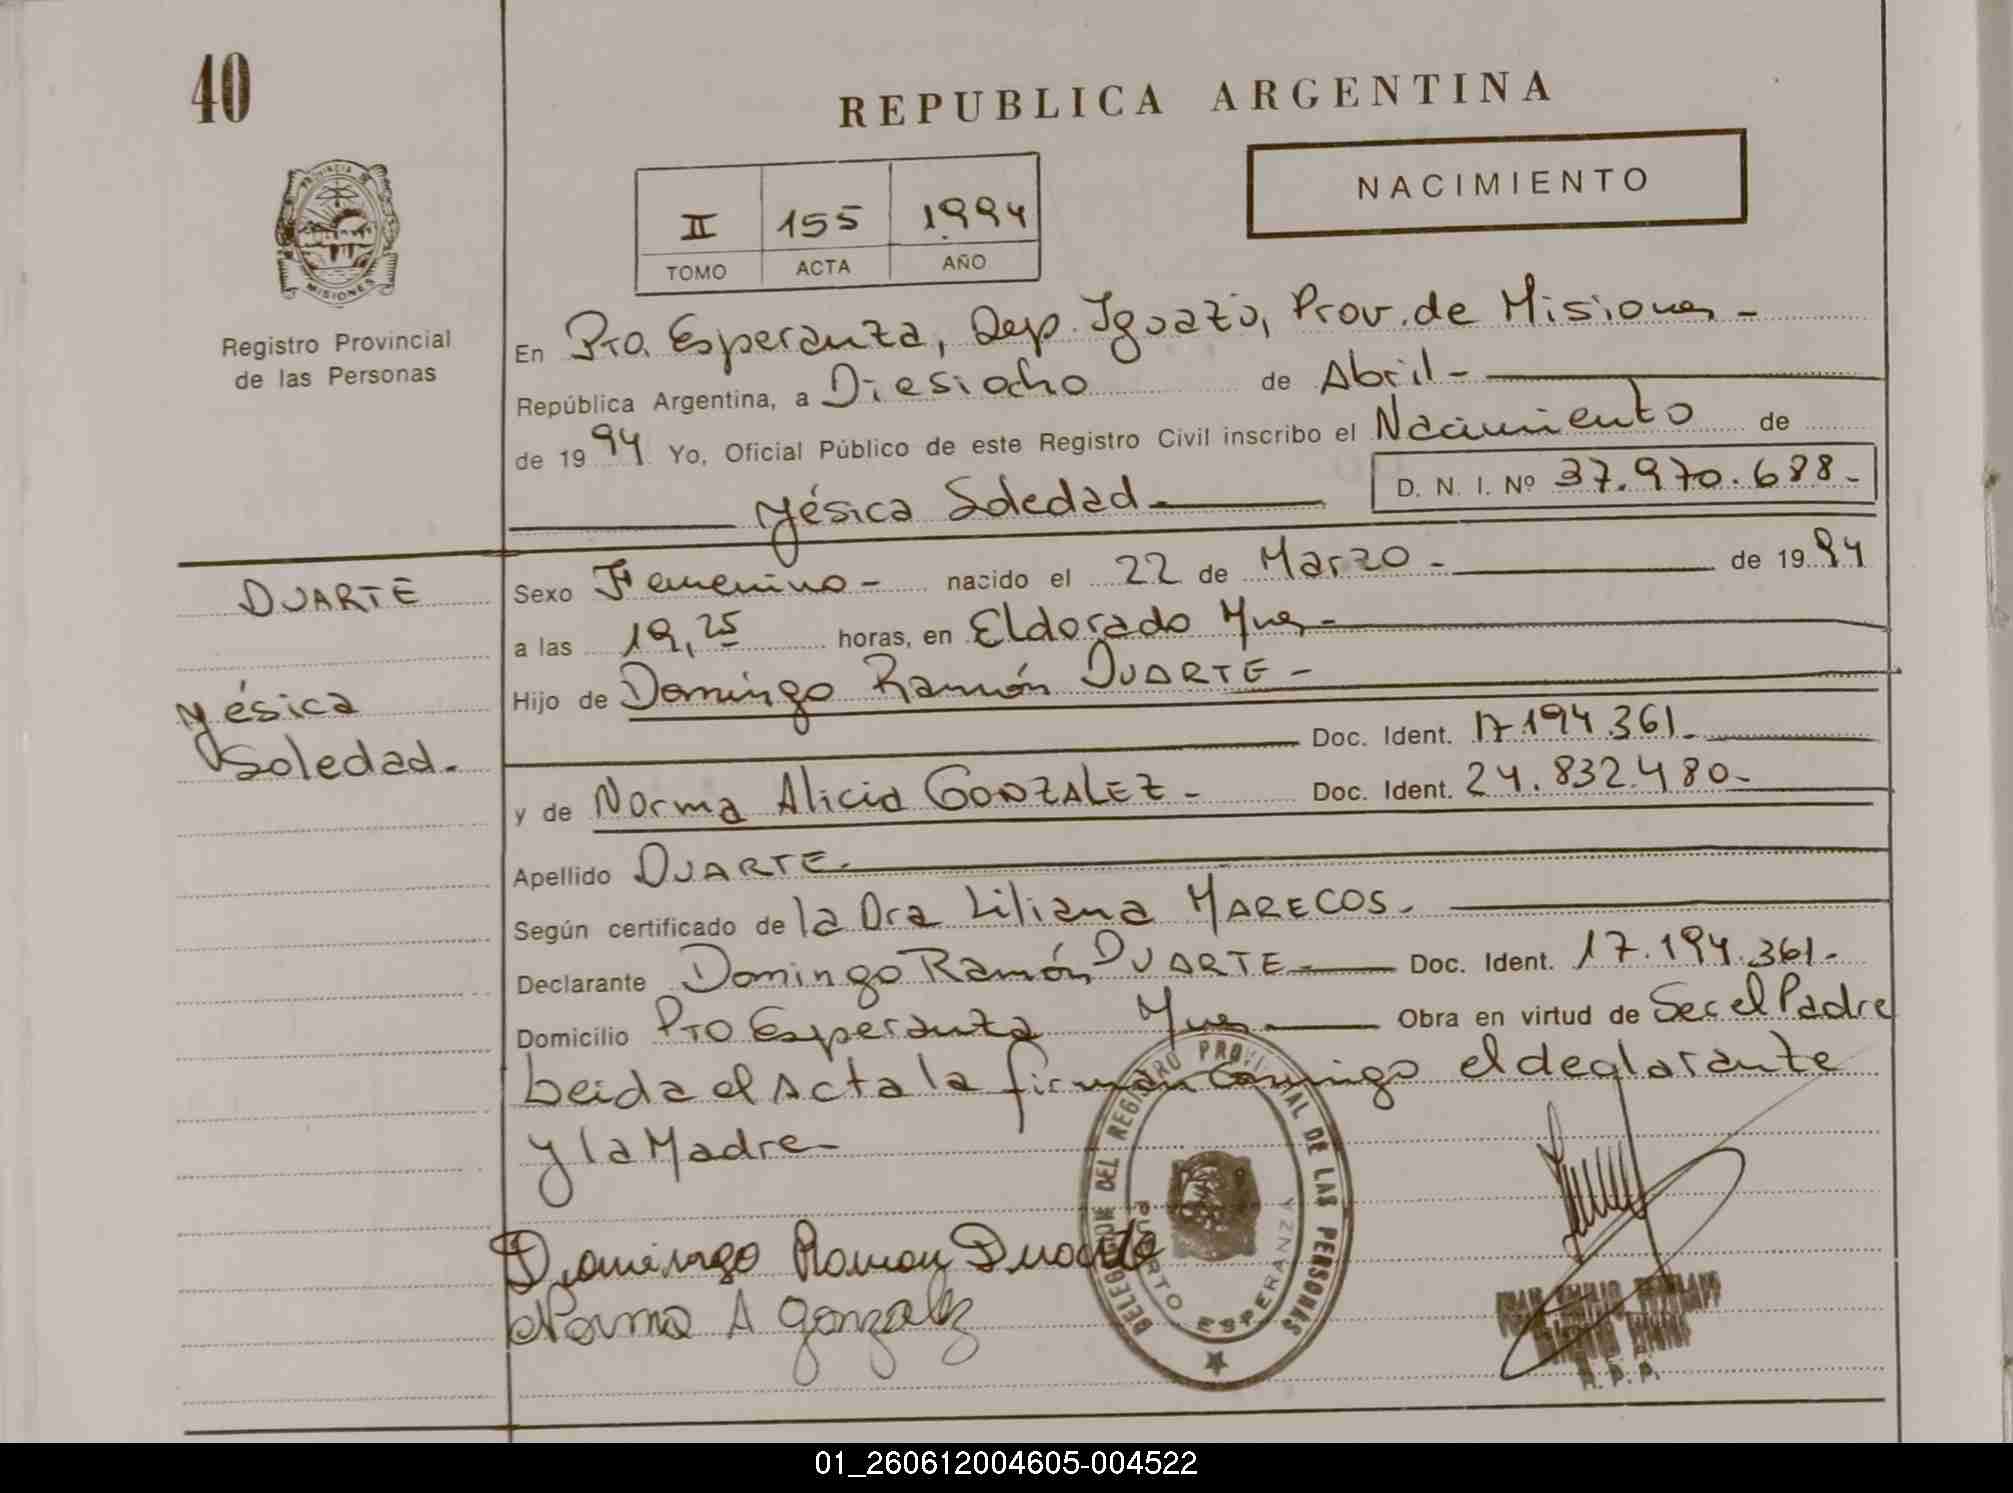 40
REPUBLICA ARGENTINA
NACIMIENTO
II 155 1994
TOMO ACTA AÑO
PROVINCIA DE
MISIONES
Registro Provincial
de las Personas
En Pto. Esperanza, Dep. Iguazú, Prov. de Misiones -
República Argentina, a Diesiocho de Abril -
de 19 94 Yo, Oficial Público de este Registro Civil inscribo el Nacimiento de
Yésica Soledad - D. N. I. Nº 37.970.688 -
DUARTE
Yésica
Soledad.
Sexo Femenino - nacido el 22 de Marzo - de 19 94
a las 19,25 horas, en Eldorado Mnes -
Hijo de Domingo Ramón DUARTE -
Doc. Ident. 17.194.361.
y de Norma Alicia GONZALEZ - Doc. Ident. 24.832.480 -
Apellido DUARTE.
Según certificado de la Dra Liliana MARECOS -
Declarante Domingo Ramón DUARTE - Doc. Ident. 17.194.361 -
Domicilio Pto Esperanza Mnes - Obra en virtud de Ser el Padre
Leida el Acta la firman Conmigo el deglarante
y la Madre -
DELEGACION DEL REGISTRO PROVINCIAL DE LAS PERSONAS
PUERTO ESPERANZA
Domingo Ramon Duarte
Norma A Gonzalez
R. P. P.
01_260612004605-004522